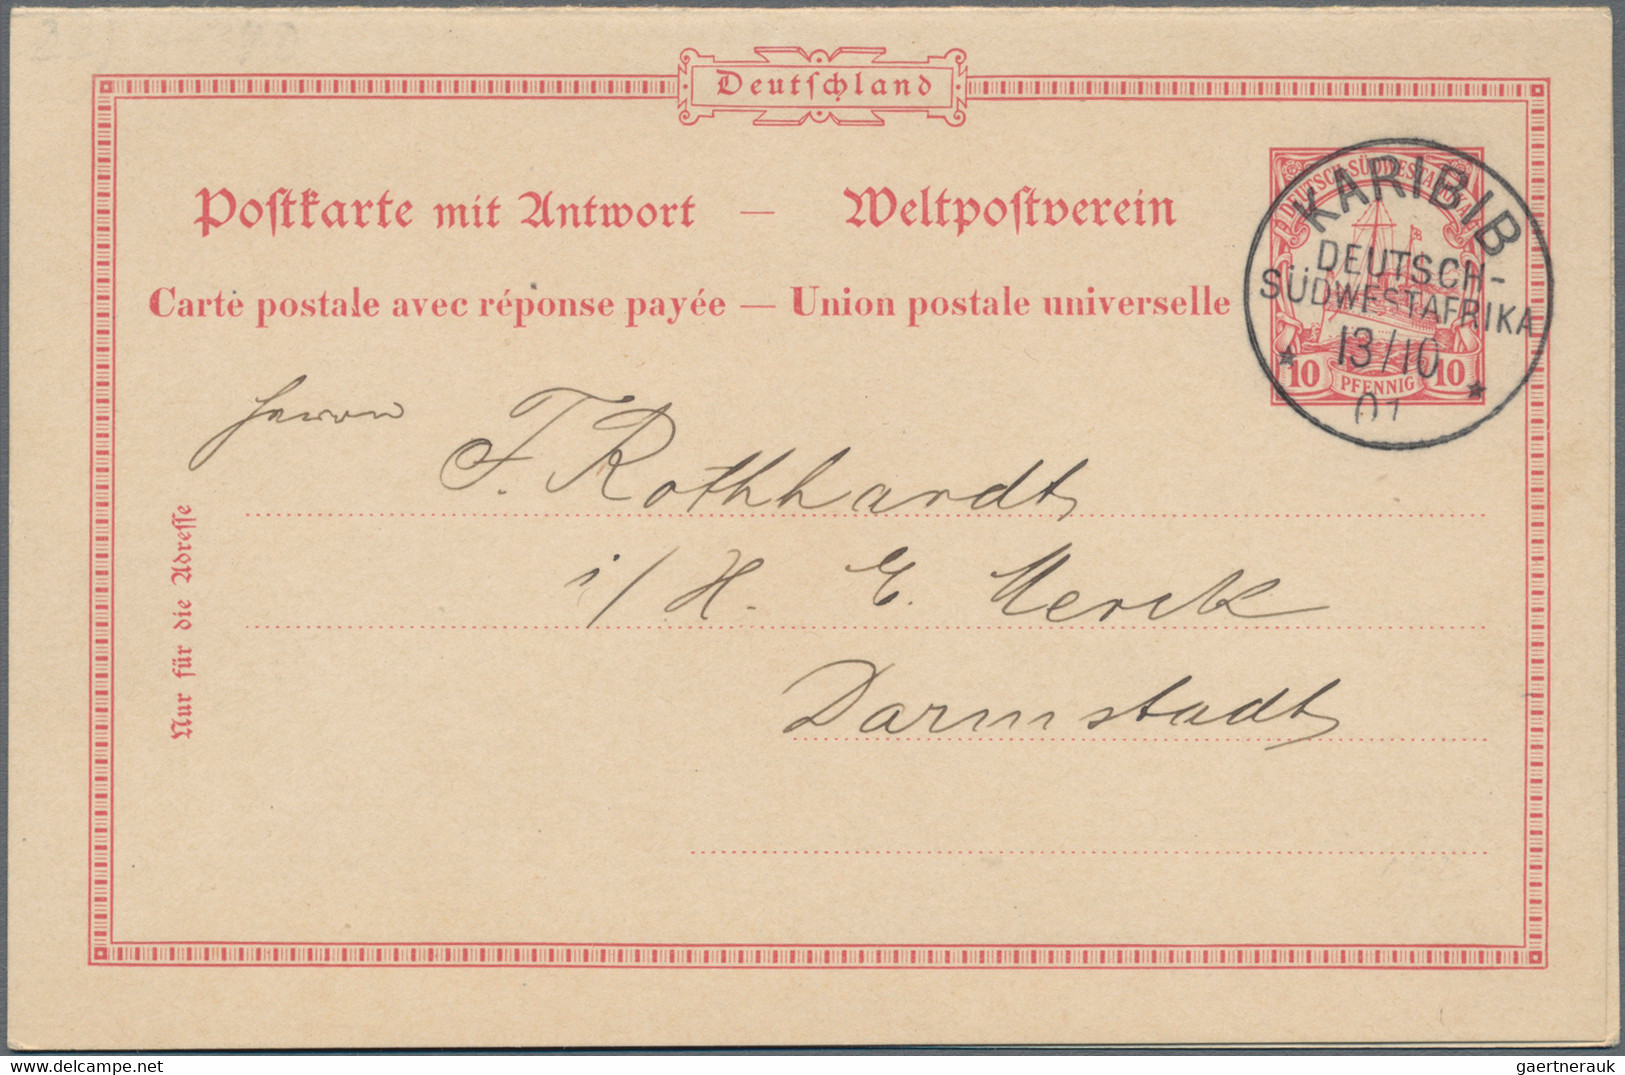 Deutschland
Postkarte mit Antwort — Weltpostverein
Carte postale avec réponse payée — Union postale universelle
DEUTSCH-SÜDWESTAFRIKA
10 PFENNIG 10
KARIBIB
DEUTSCH-
SÜDWESTAFRIKA
13/10
01
Herrn
F. Rothhardt
i/H. E. Merck
Darmstadt
Nur für die Adresse
gaertnerauk